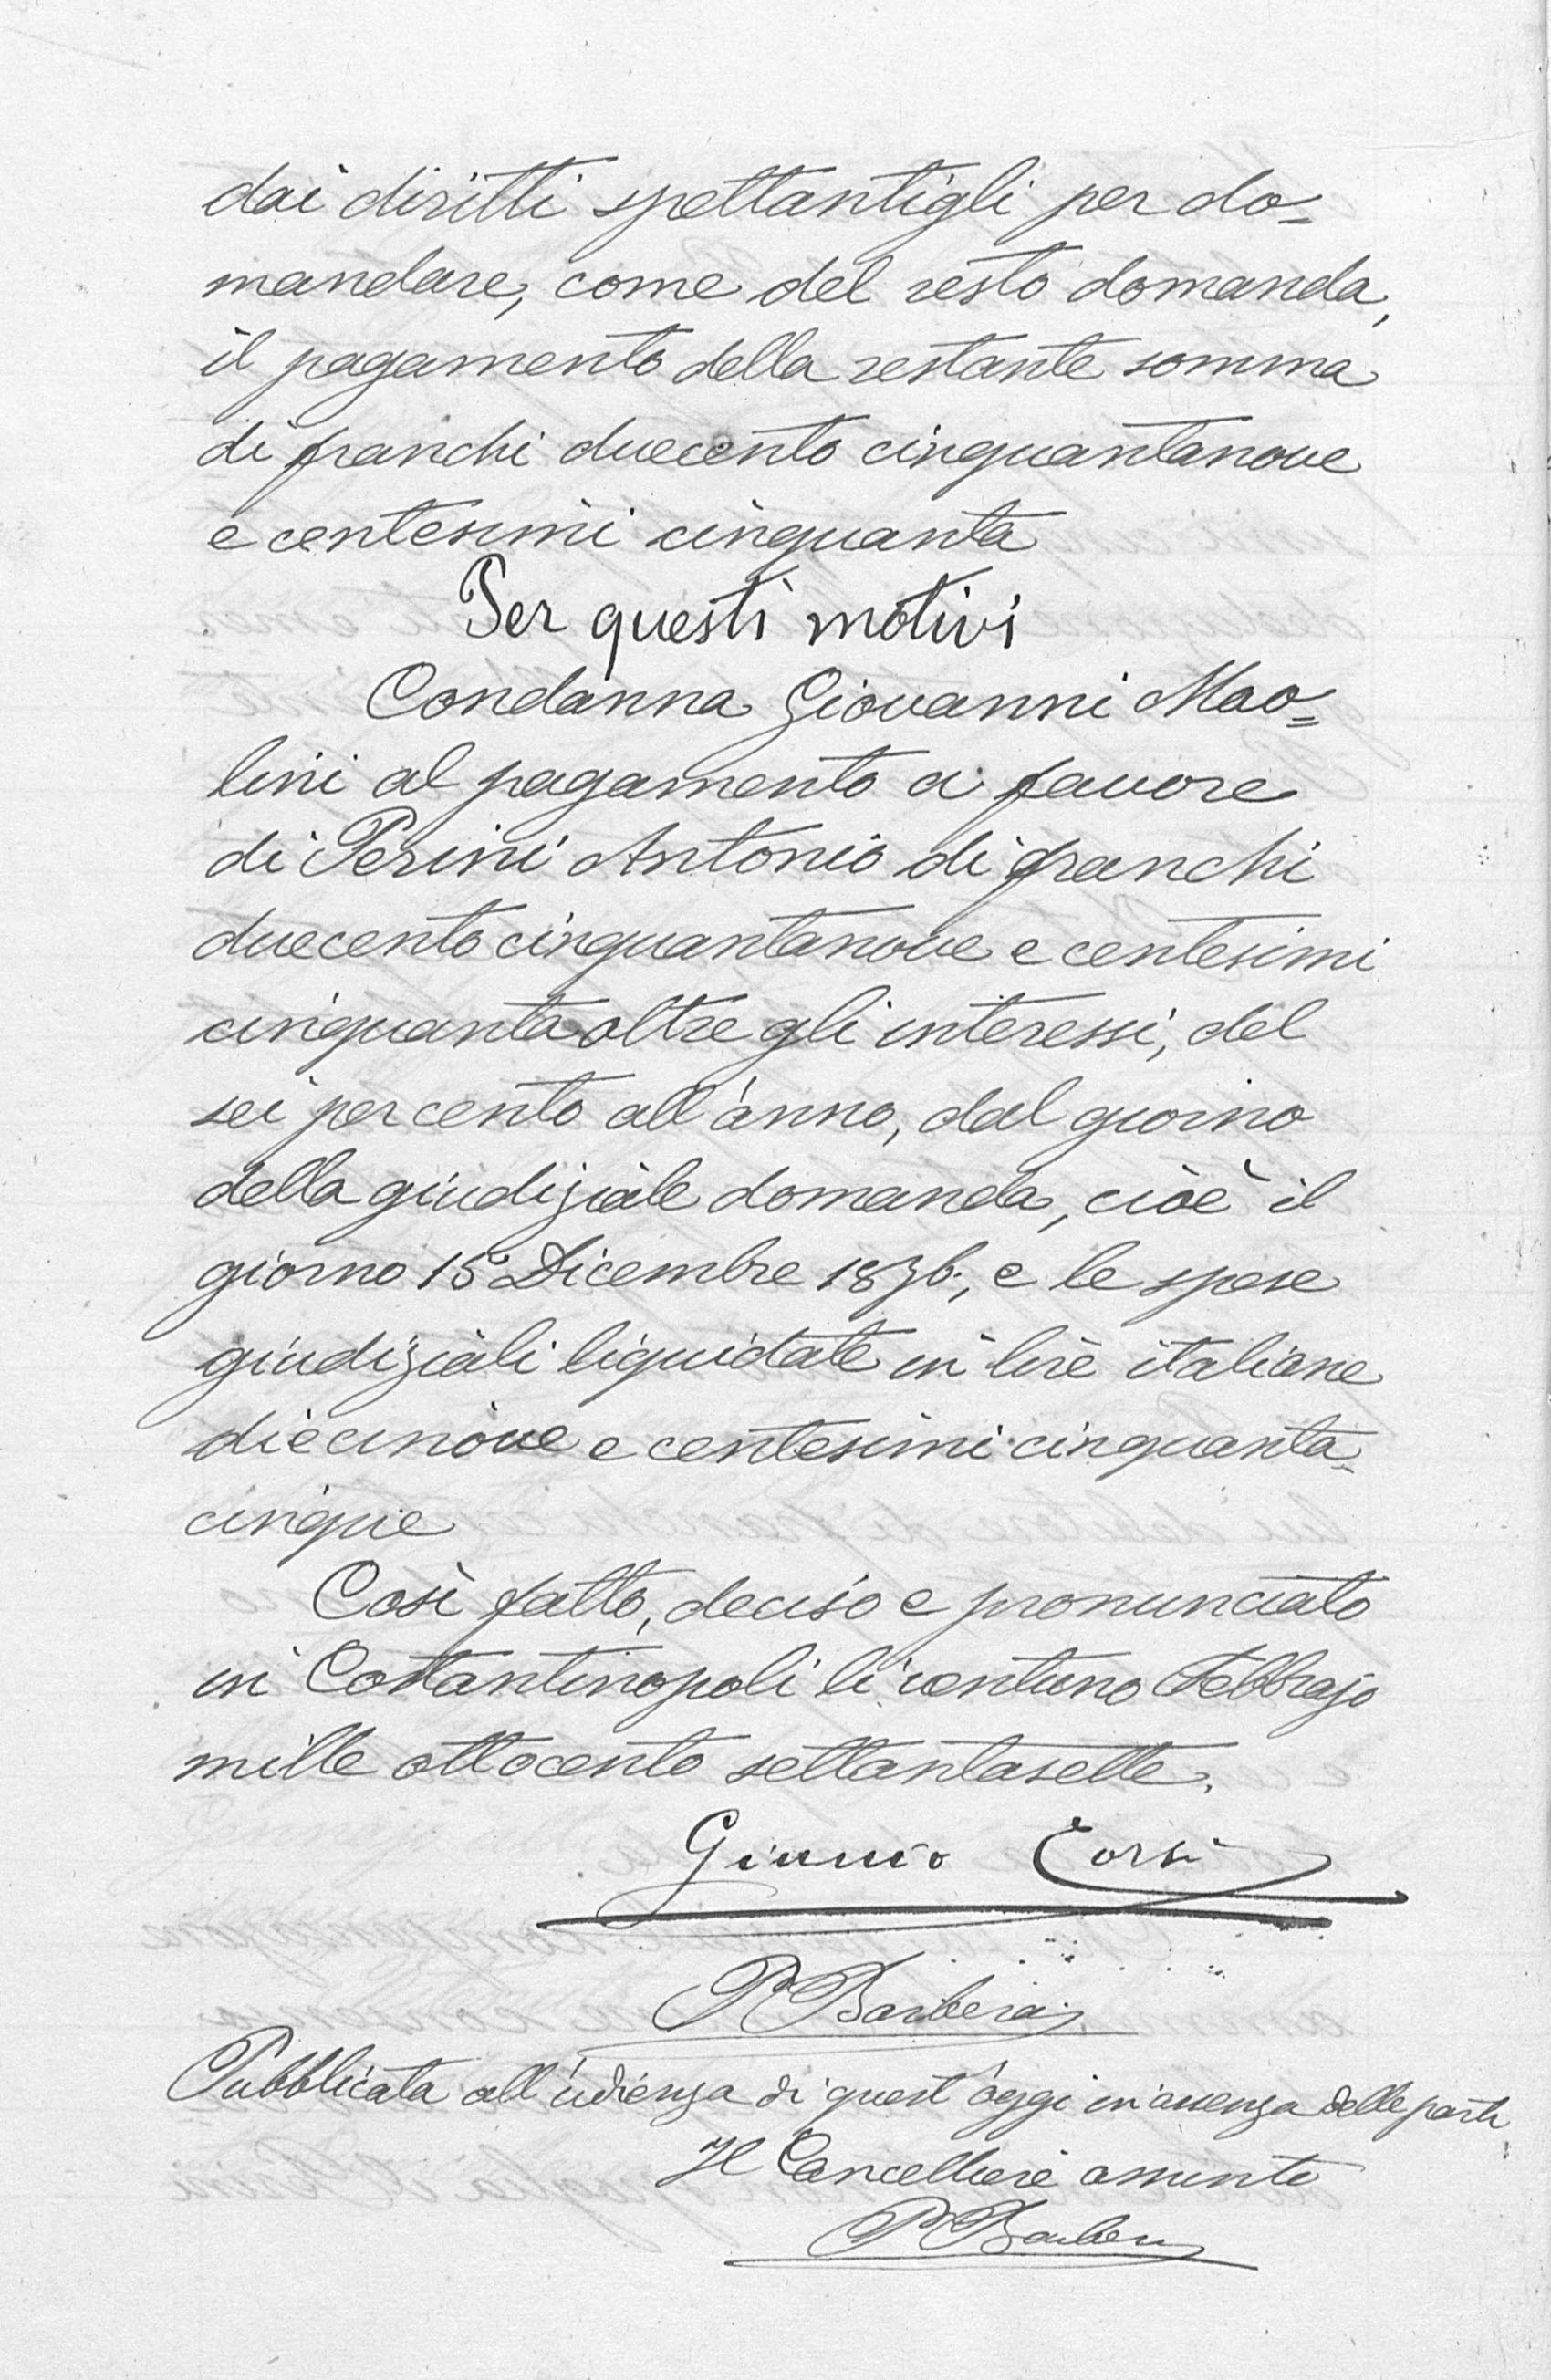 dai diritti spettantigli per do=
mandare, come del resto domanda,
il pagamento della restante somma
di franchi duecento cinquantanove
e centesimi cinquanta
Per questi motivi
Condanna Giovanni Mao=
lini al pagamento a favore
di Perini Antonio di franchi
duecento cinquantanove e centesimi
cinquanta oltre gli interessi, del
sei per cento all'anno, dal giorno
della giudiziale domanda, cioè il
giorno 15 Dicembre 1876., e le spese
giudiziali liquidate in lire italiane
diecinove e centesimi cinquanta=
cinque
Così fatto, deciso e pronunciato
in Costantinopoli li ventuno Febbrajo
mille ottocento settantasette.
Giunio Corsi
P Barbera
Pubblicata all'udienza di quest'oggi in assenza delle parti
Il Cancelliere assunto
P Barbera